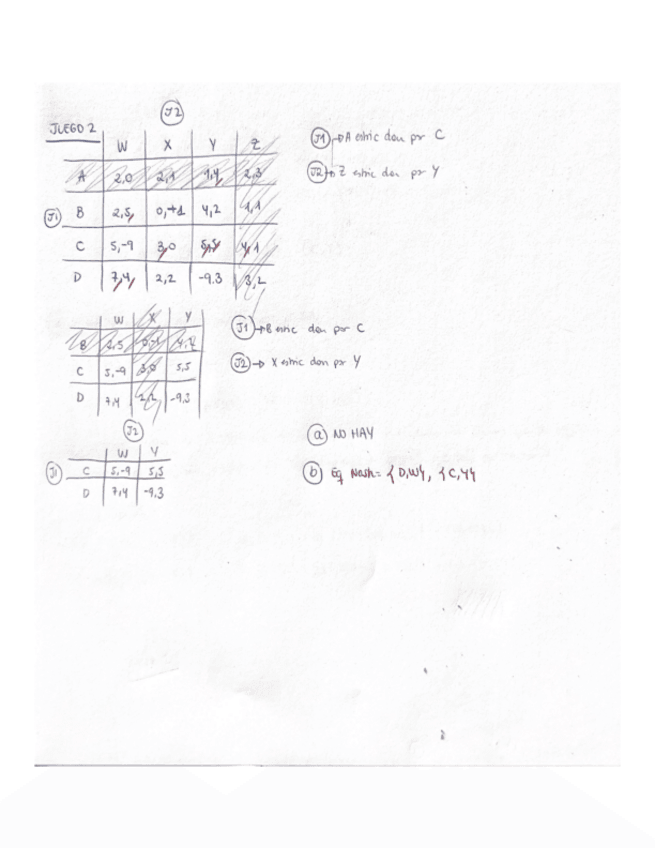 J2
JUEGO 2
W X Y Z
A 2,0 2,1 1,4 2,3
J1 B 2,5 0,+1 4,2 1,1
C 5,-9 3,0 5,5 4,1
D 7,4 2,2 -9,3 3,2
J1 → A estric dom por C
J2 → Z estric dom por Y
W X Y
B 2,5 4,2
C 5,-9 3,0 5,5
D 7,4 2,2 -9,3
J1 → B estric dom por C
J2 → X estric dom por Y
J2
W Y
J1 C 5,-9 5,5
D 7,4 -9,3
a NO HAY
b Eq Nash = {D,W}, {C,Y}